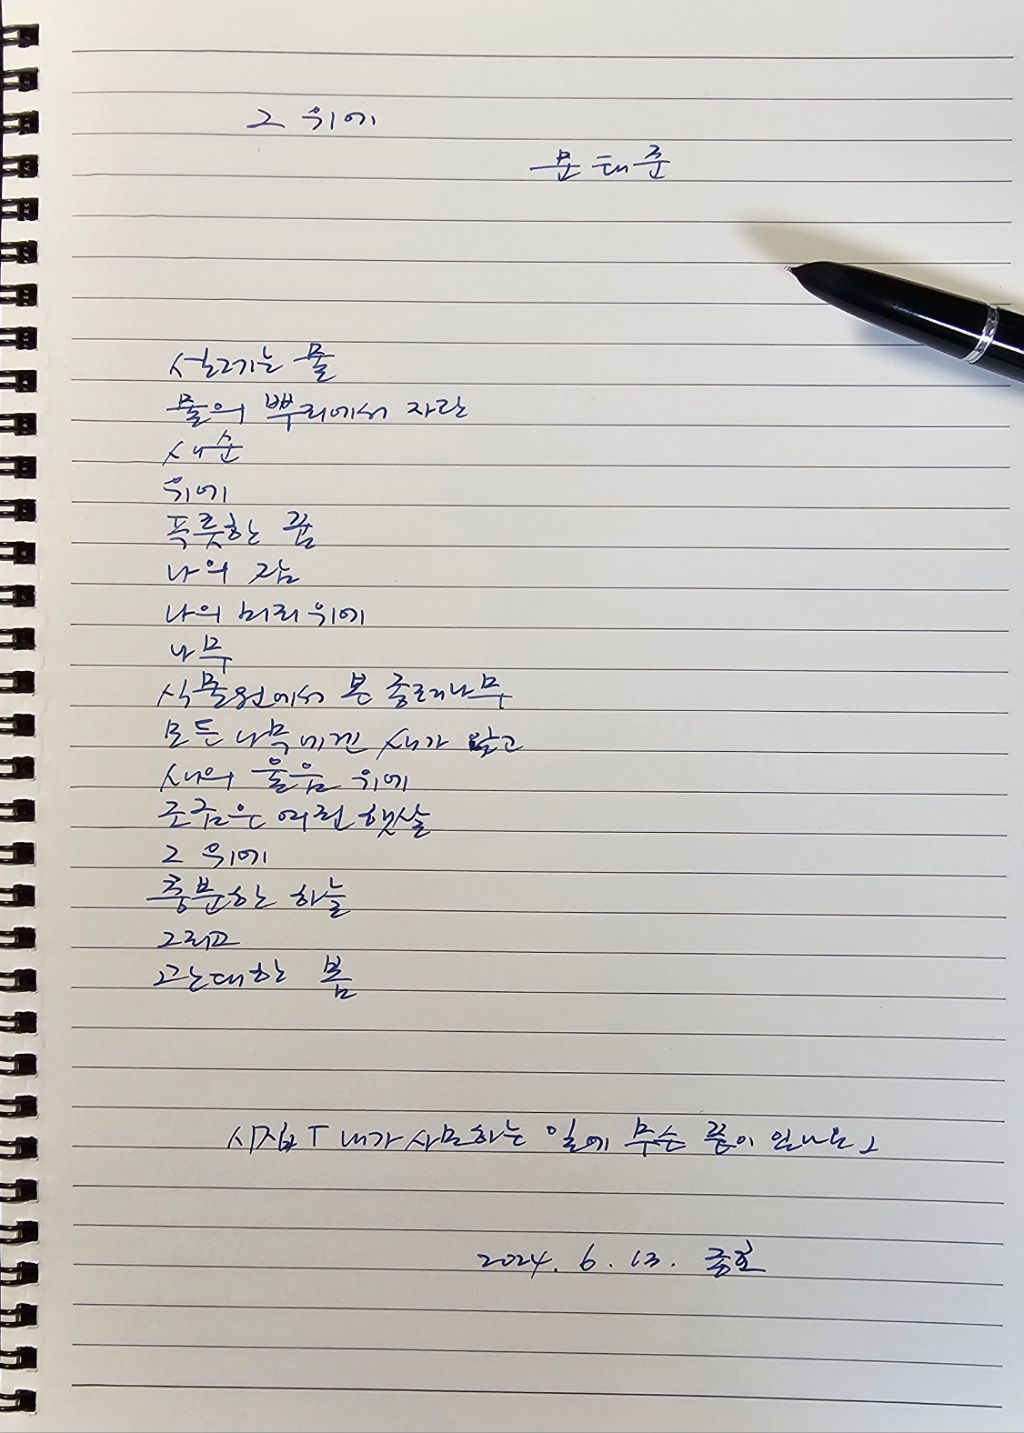 그 위에
문태준
설레는 물
물의 뿌리에서 자란
새순
위에
푸릇한 꿈
나의 잠
나의 머리 위에
나무
식물원에서 본 종려나무
모든 나무에겐 새가 앉고
새의 울음 위에
조금은 여린 햇살
그 위에
충분한 하늘
그리고
관대한 봄
시집 「내가 사모하는 일에 무슨 끝이 있나요」
2024. 6. 13.